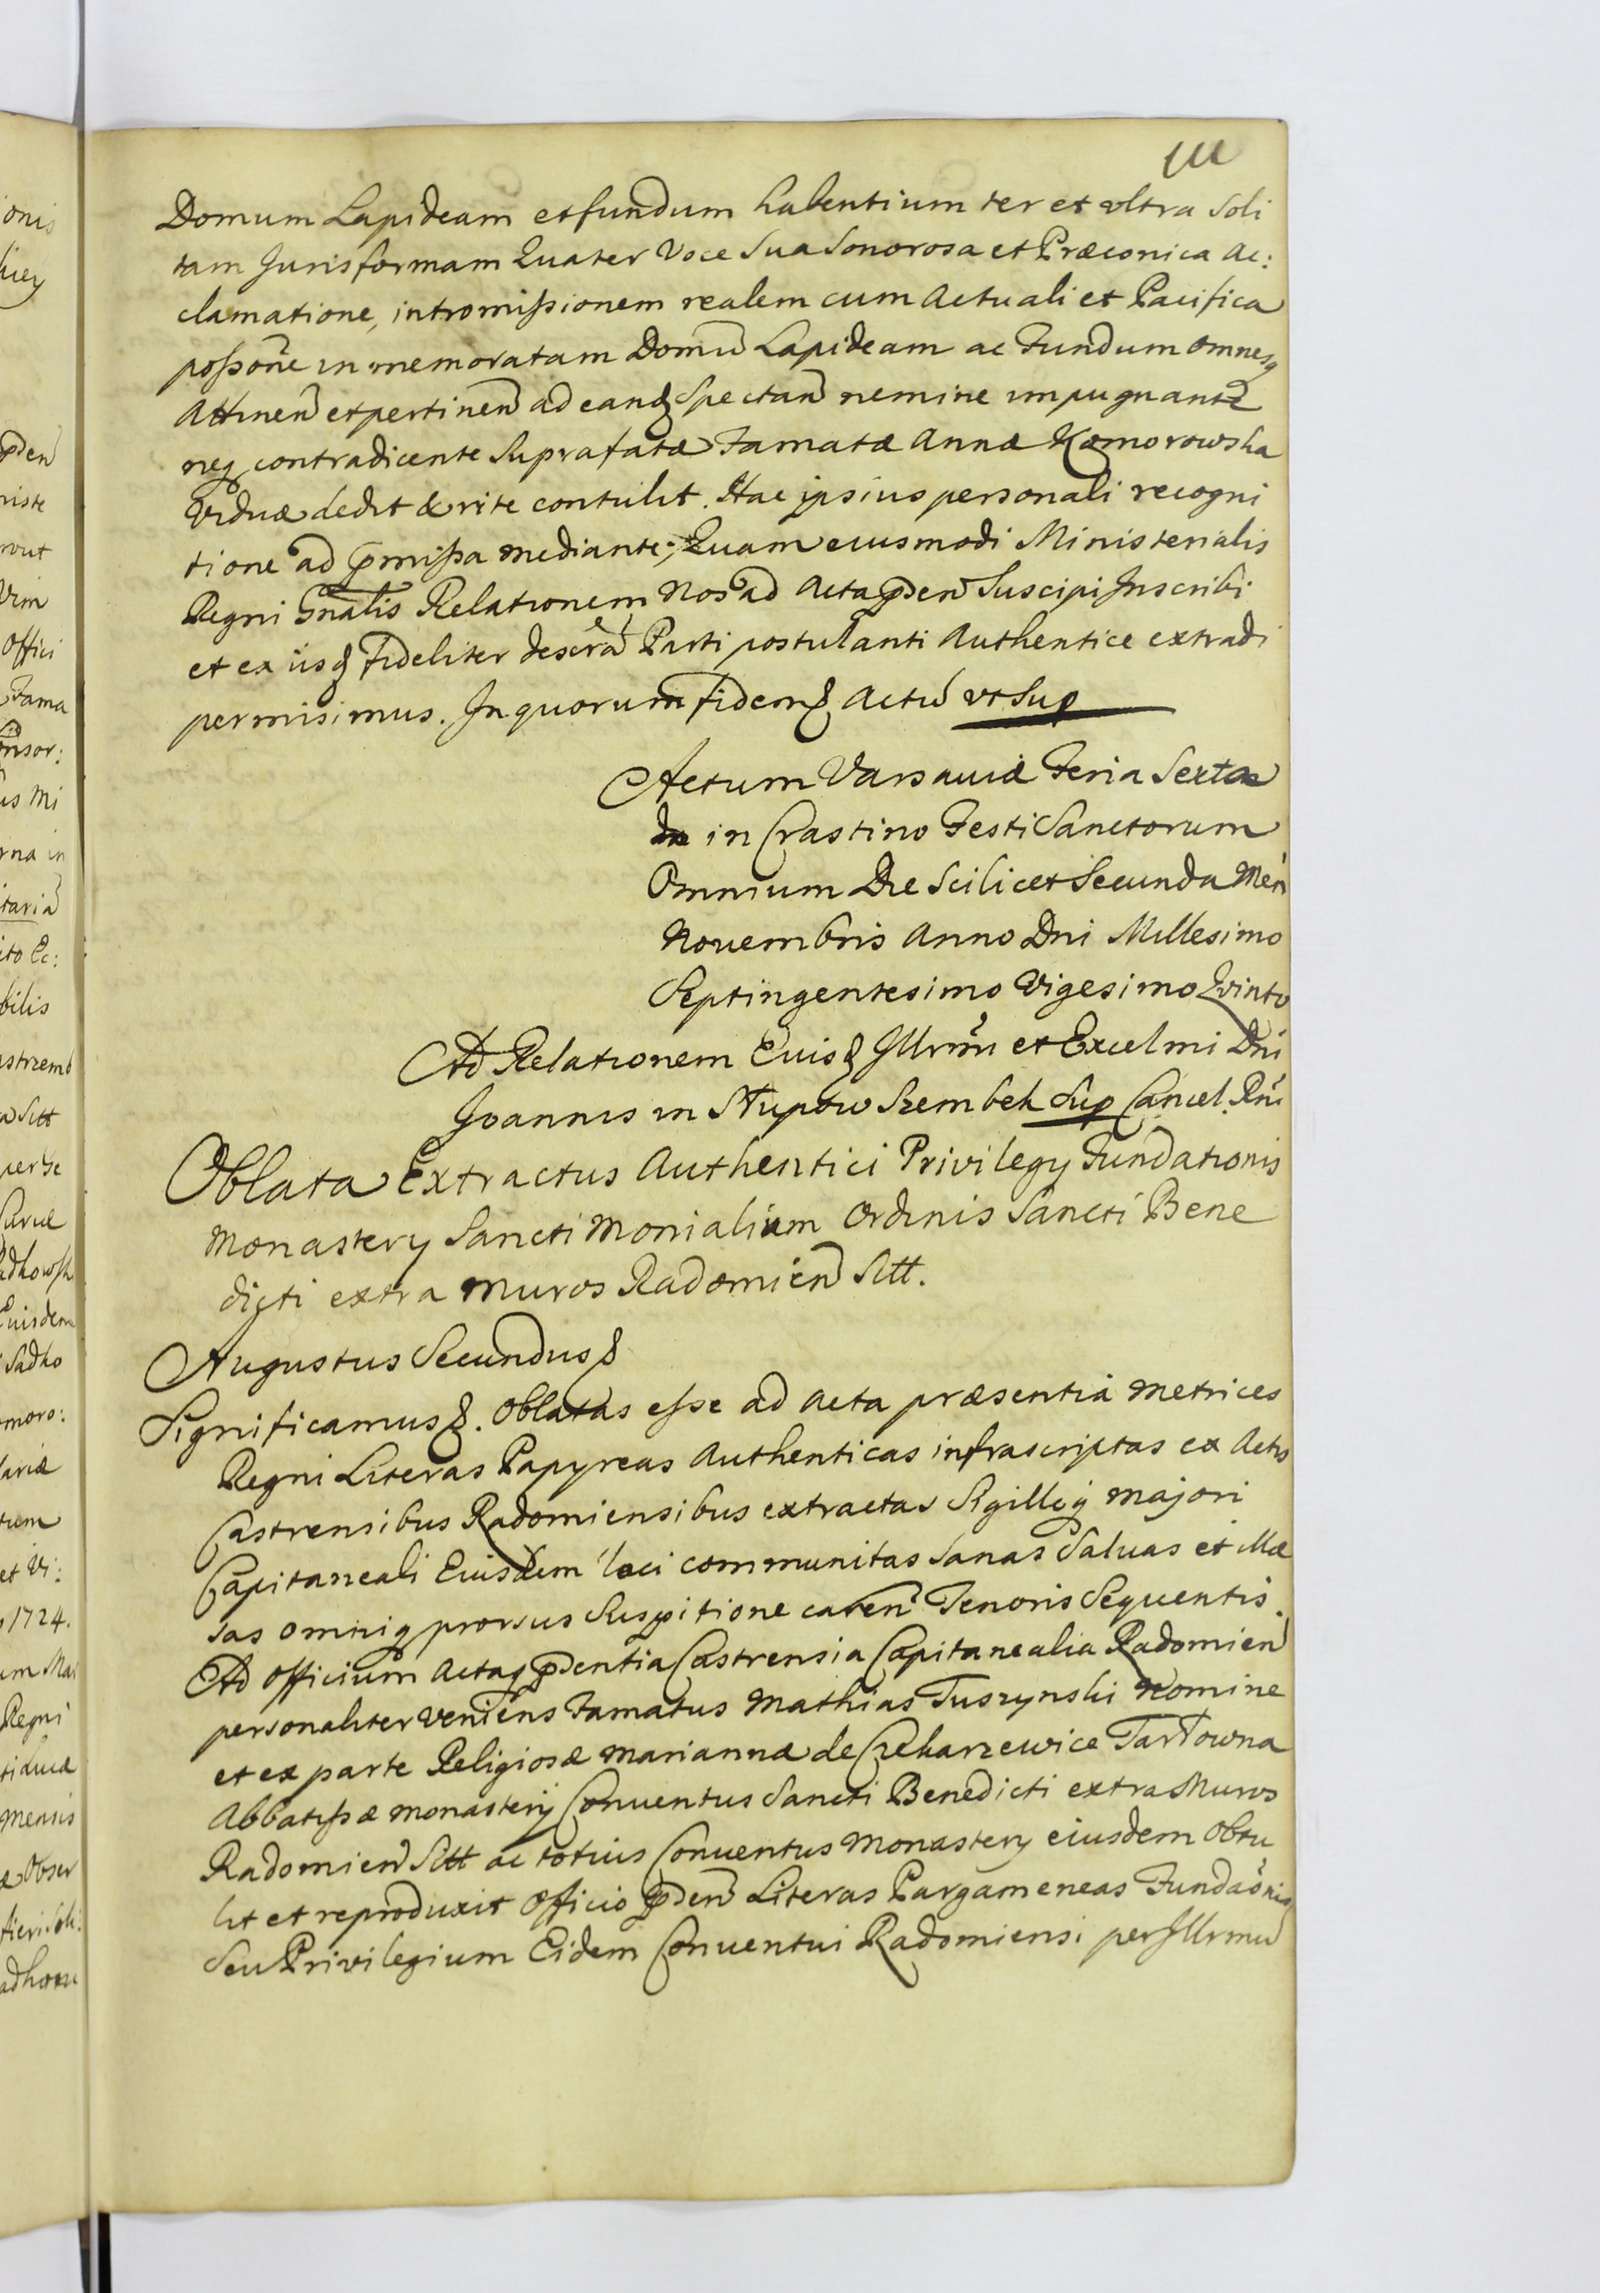 111
Domum Lapideam et fundum habentium ter et ultra Soli
tam Juris formam Quater Voce Sua Sonorosa et Præconica Ac:
clamatione, intromissionem realem cum Actuali et Pacifica
possõne in memoratam Domũ Lapideam ac Fundum omnesq
Attinen̄ et pertinen̄ ad eand Spectan̄ nemine impugnante
neq contradicente Suprafatæ Famatæ Annæ Komorowska
Viduæ dedit & rite contulit. Hac ipsius personali recogni
tione ad præmissa mediante; Quam eiusmodi Ministerialis
Regni Gnalis Relationem Nos ad Acta pñden Suscipi Inscribi
et ex iisd fideliter Parti postulanti Authentice extradi
permisimus. In quorum fidem & Actũ ut Sup
Actum Varsaviæ Feria Sexta
in Crastino Festi Sanctorum
Omnium Die Scilicet Secunda Men
Novembris Anno Dni Millesimo
Septingentesimo Vigesimo Qvinto
Ad Relationem Euisd Illrmi et Excelmi Dni
Joannis in Słupow Szembek Sup Cancel. Rni
Oblata Extractus Authentici Privilegy Fundationis
Monastery Sancti Monialium Ordinis Sancti Bene
dicti extra Muros Radomien̄ Sitt.
Augustus Secundus &
Significamus &. Oblatas esse ad Acta præsentia Metrices
Regni Literas Papyreas Authenticas infrascriptas ex Actis
Castrensibus Radomiensibus extractas Sigilloq majori
Capitaneali Eiusdem loci communitas Sanas Salvas et illæ
sas omniq prorsus Suspitione caren̄ Tenoris Sequentis.
Ad Officium Actaq pñdentia Castrensia Capitanealia Radomien̄
personaliter veniens Famatus Mathias Tuszynski Nomine
et ex parte Religiosæ Mariannæ de Czekarzewice Tarłowna
Abbatissæ Monastery Conventus Sancti Benedicti extra Muros
Radomien̄ Sitt ac totius Conventus Monastery eiusdem Obtu
lit et reproduxit Officio pñden̄ Literas Pargameneas Fundaõnis
Seu Privilegium Eidem Conventui Radomiensi per Illrmũ